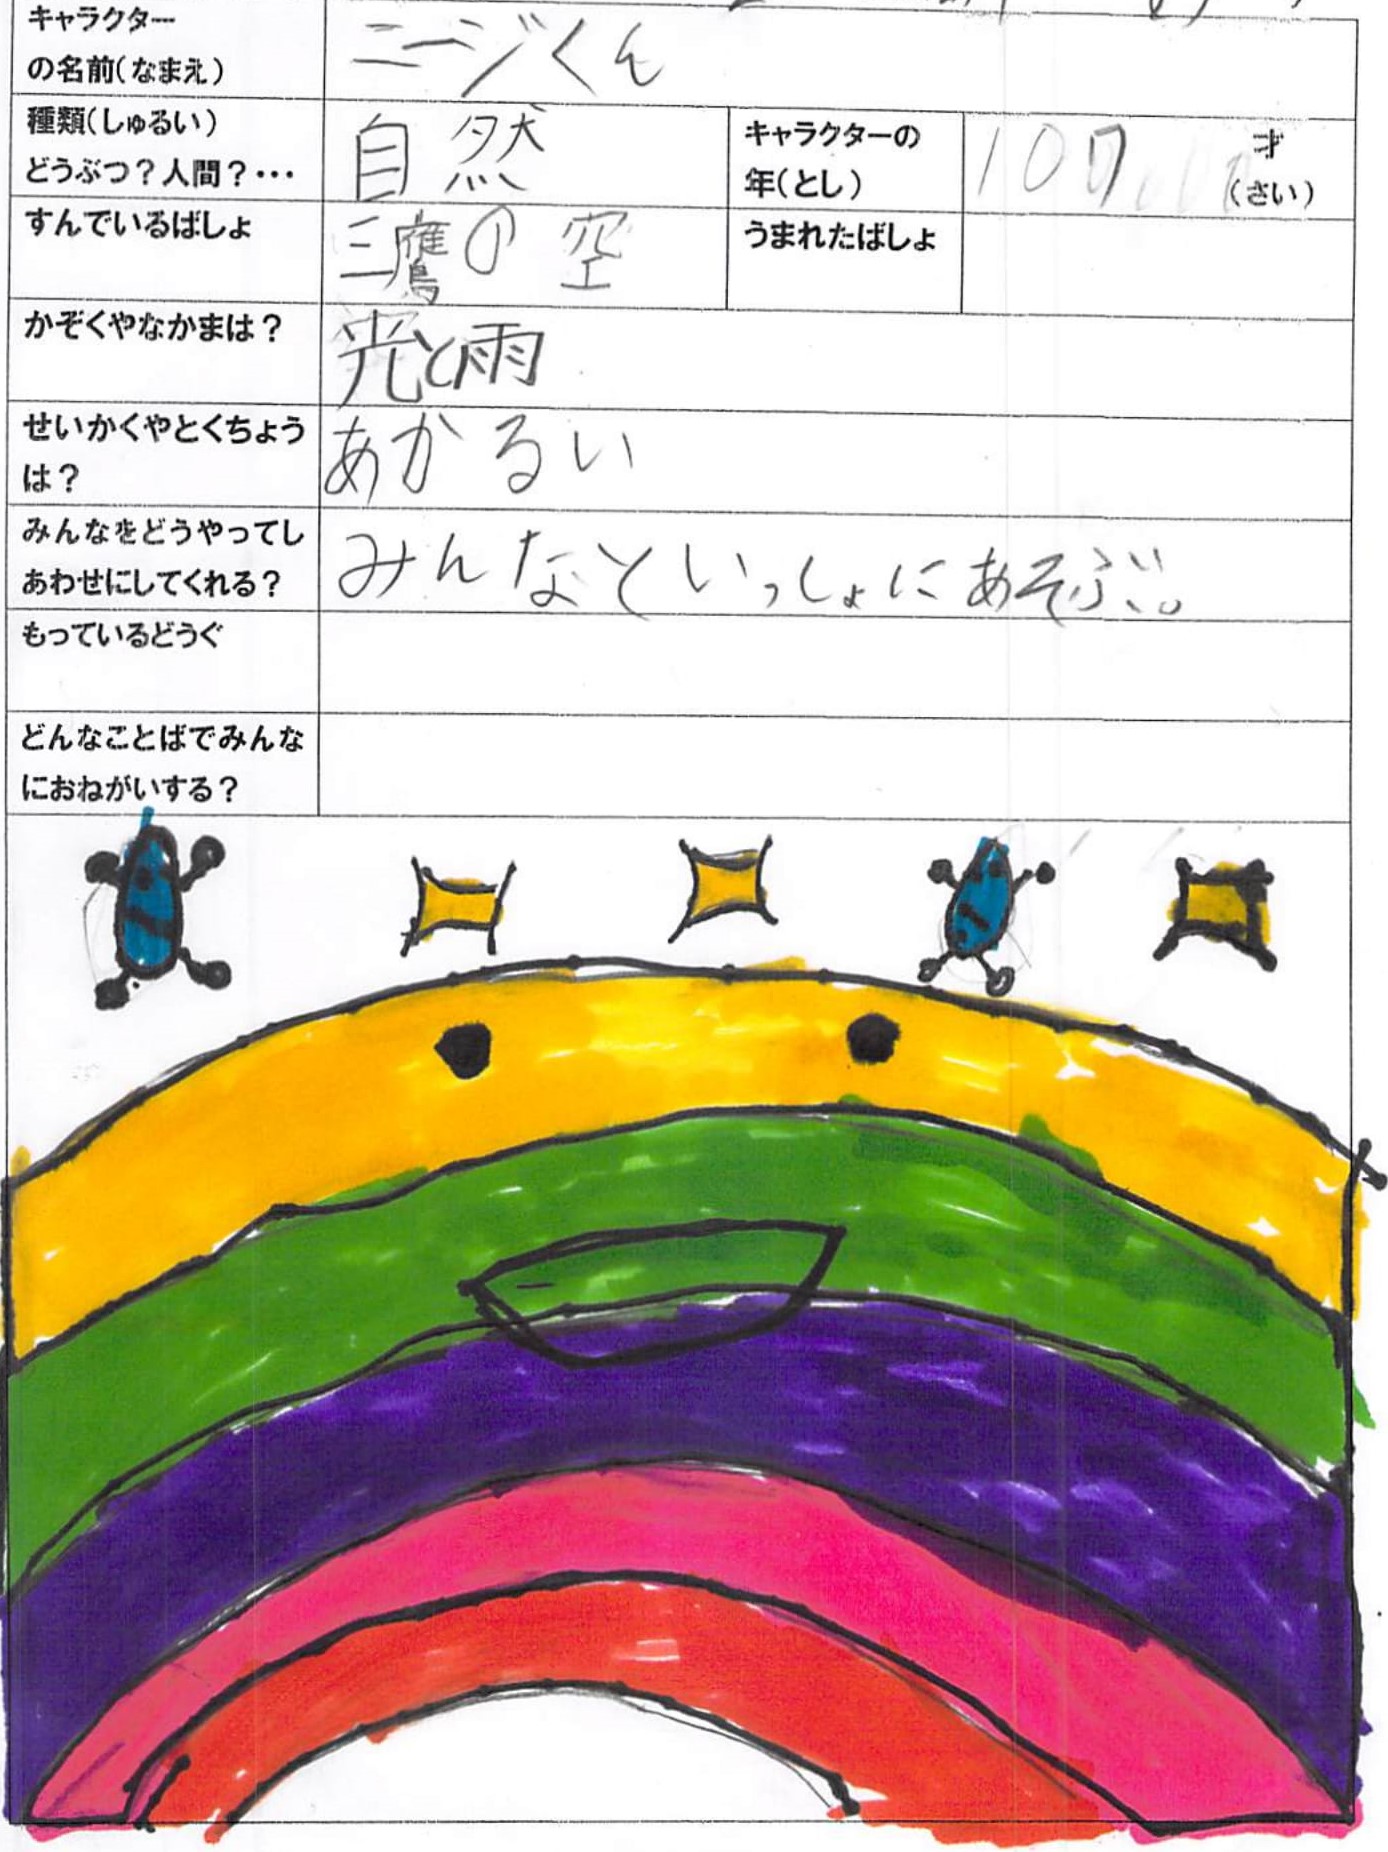 キャラクター
の名前(なまえ)
ニージくん
種類(しゅるい)
どうぶつ?人間?・・・
自然
キャラクターの
年(とし)
100
才
(さい)
すんでいるばしょ
三鷹の空
うまれたばしょ
かぞくやなかまは?
光と雨
せいかくやとくちょう
は?
あかるい
みんなをどうやってし
あわせにしてくれる?
みんなといっしょにあそぶ。
もっているどうぐ
どんなことばでみんな
におねがいする?